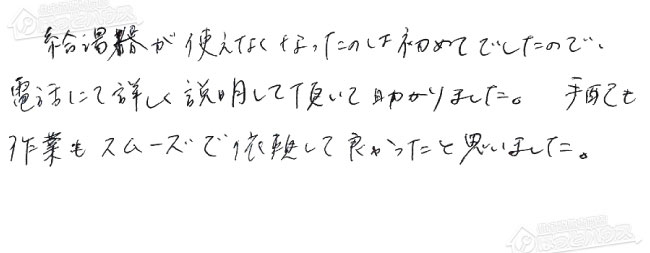 給湯器が使えなくなったのは初めてでしたので、
電話にて詳しく説明して頂いて助かりました。 手配も
作業もスムーズで依頼して良かったと思いました。